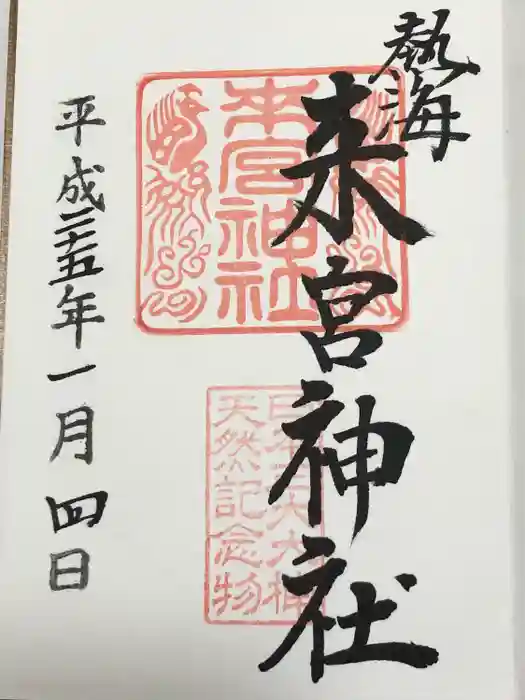 熱海
来宮神社
来宮神社
日本三大大楠
天然記念物
平成二十五年一月四日